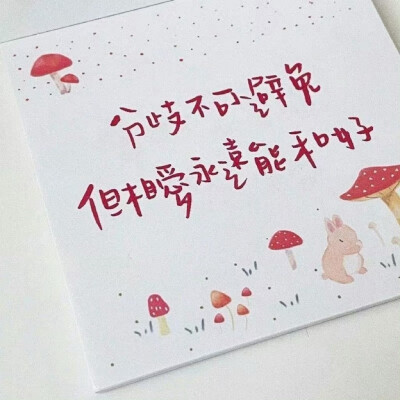 分歧不可避免
但相愛永遠能和好